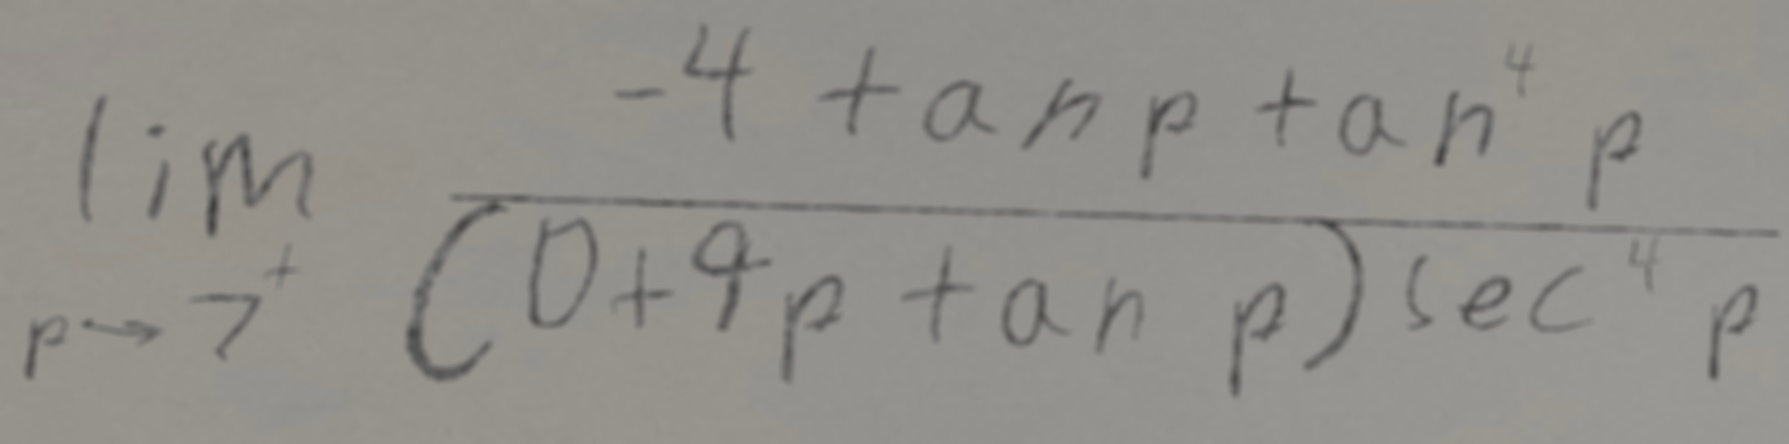 \lim_{p \to 7^+} \frac{-4 \tan p \tan^4 p}{(0+9p \tan p) \sec^4 p}